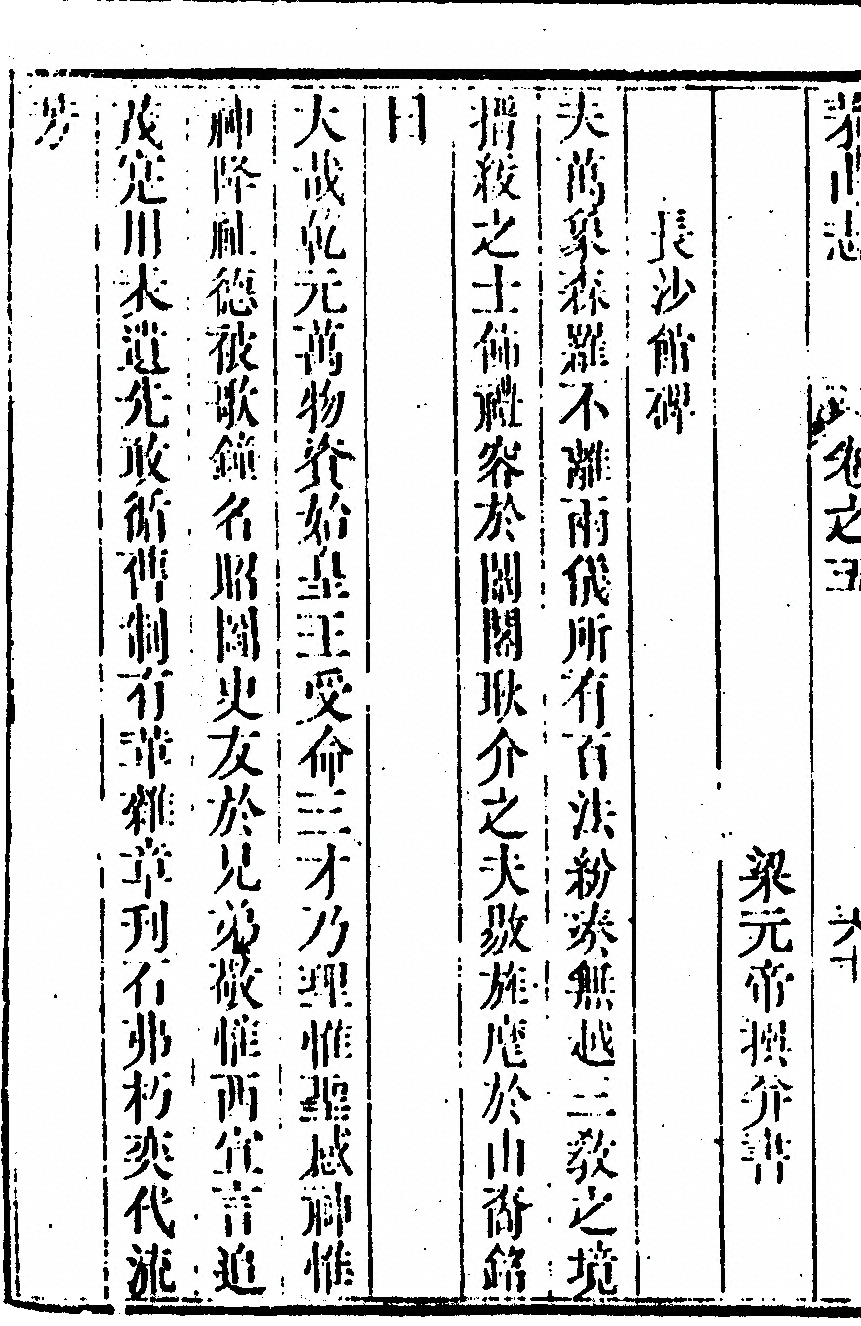 茅山志 卷之五 六十
梁元帝撰并書
長沙館碑
夫萬象森羅不離兩儀所有百法紛湊無越三教之境
搢紱之士飾禮容於闤闠耿介之夫敬旌麾於山裔銘
曰
大哉乾元萬物資始皇王受命三才乃理惟聖感神惟
神降祉德被歌鐘名昭圖史友於兄弟敬惟西宜言追
茂寔用未遺先敢循舊制有革雜章刊石弗朽奕代流
芳